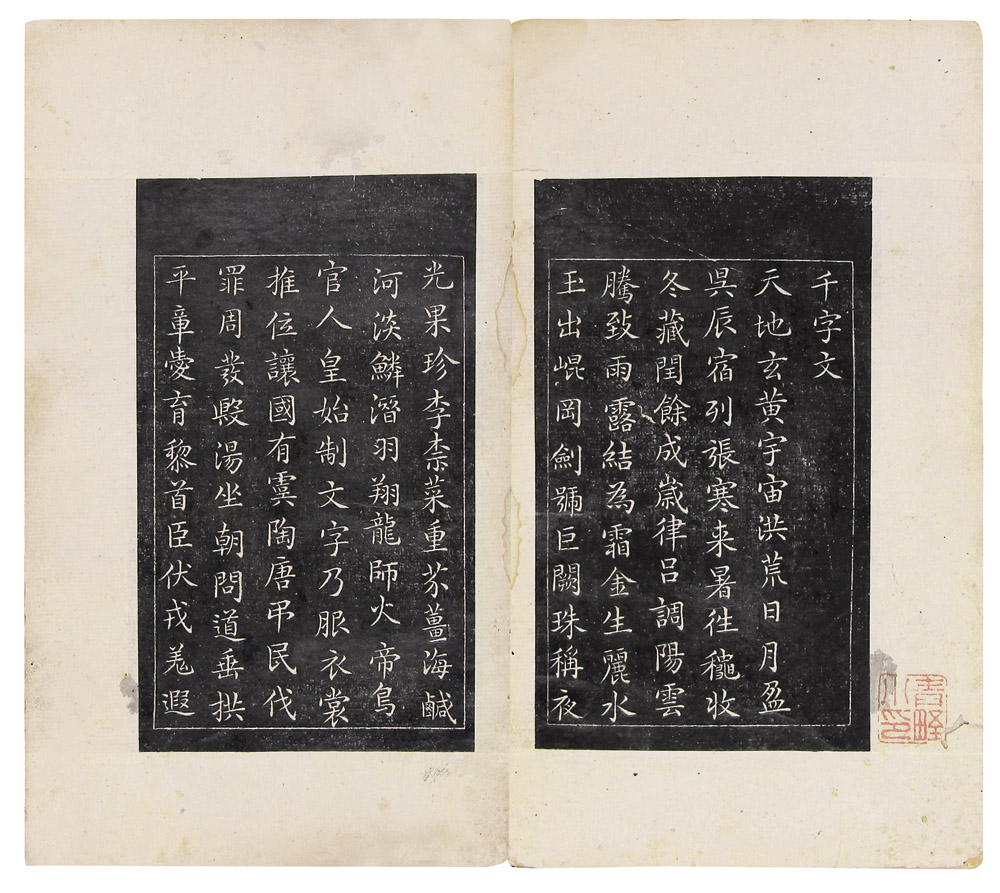 千字文
天地玄黄宇宙洪荒日月盈
昃辰宿列張寒来暑往穐收
冬藏閏餘成歲律吕調陽雲
騰致雨露結為霜金生麗水
玉出崐岡劍號巨闕珠稱夜
光果珍李柰菜重芥薑海鹹
河淡鱗潛羽翔龍師火帝鳥
官人皇始制文字乃服衣裳
推位讓國有虞陶唐弔民伐
罪周發殷湯坐朝問道垂拱
平章愛育黎首臣伏戎羌遐